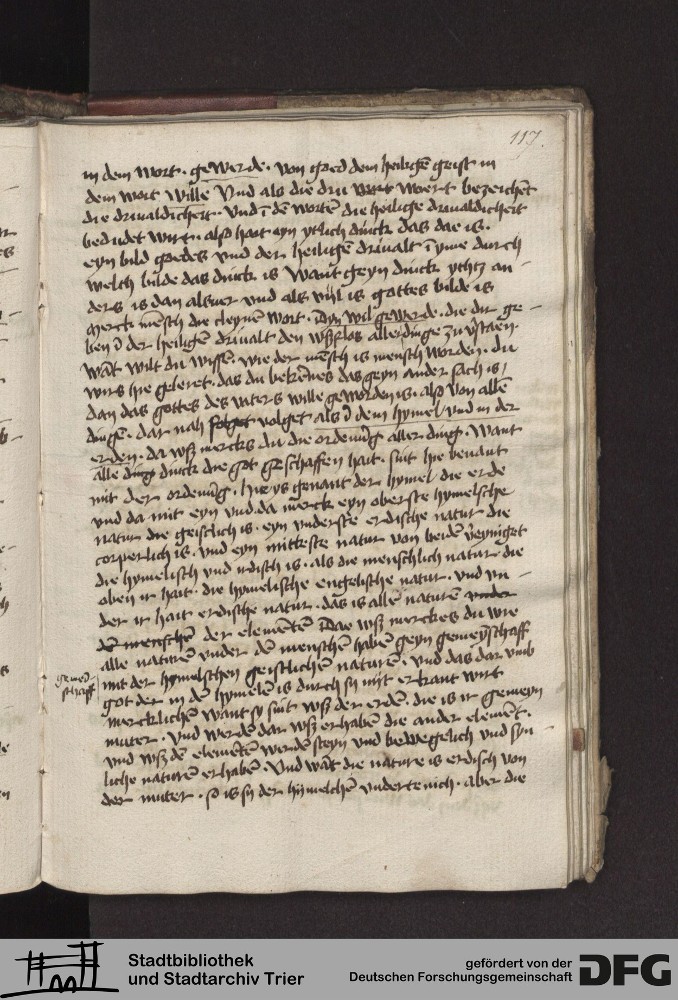 117.
in dem wort . gewerde . von goed dem heiligē geist in
dem wort wille Vnd als die dru wort bezeichēt
die druualdicheit . Vnd ī dē wortē die heilige druualdicheit
bedudet wirt . also hait eyn ytlich dinck das dae is .
eyn bild goedes vnd der heiligē druualt ī yme durch
welch bilde das dinck is Want geyn dinck ychtz an
ders is dan alsuer vnd als vijl is gottes bilde is
merck mēsch die cleynen wort . Dyn wil gewerde . die dir ge
ben der heiligen druualt den allerdinge zu
wāt wilt du wissen . wie der mēsch is mensch worden . du
wirs hie geleret . das du bekēnes das geyn ander sach is
dan das gottes des vaters wille geworden is . also von allē
dingē . dar nah folget volget als ī dem hymel / vnd in der
erden . da wß mercks du die ordenūg aller ding . Want
alle ding dinck die got geschaffen hait . sint hie benant
mit der ordenūg . hie ys genant der hymel die erde
vnd da mit eyn vnd . da merck eyn oberste hymelsche
natur die geistlich is . eyn vnderste erdische natur die
corperlich is . vnd eyn mitteste natur von beidē v̄eyniget
die hymelisch vnd irdisch is . als die menschlich natur . die
oben ir hait . die hymelische engelische natur . vnd vn
der ir hait erdische natur . das is alle naturē vnder
dē menschē der elementē Dae wß merckes du wie
alle naturē vnder dē menschen habē geyn gemeyschaff
gemei
schafft
mit der hymelschen geistlichē naturē . vnd das dar vmb
got der in dē hymelē is durch sy nijt erkant wirt
mercklichen want sy sint wß der erdē . die is ir gemeyn
muter . Vnd werdē dar wß erhaben die ander elemēt .
vnd wß dē elemētē werdē steyn vnd bewegelich vnd syn
liche naturē erhabē . Vnd wāt die nature is erdisch von
der muter . so is sy der hymelchē vndertenich . aber die
Stadtbibliothek
und Stadtarchiv Trier
gefördert von der
Deutschen Forschungsgemeinschaft
DFG